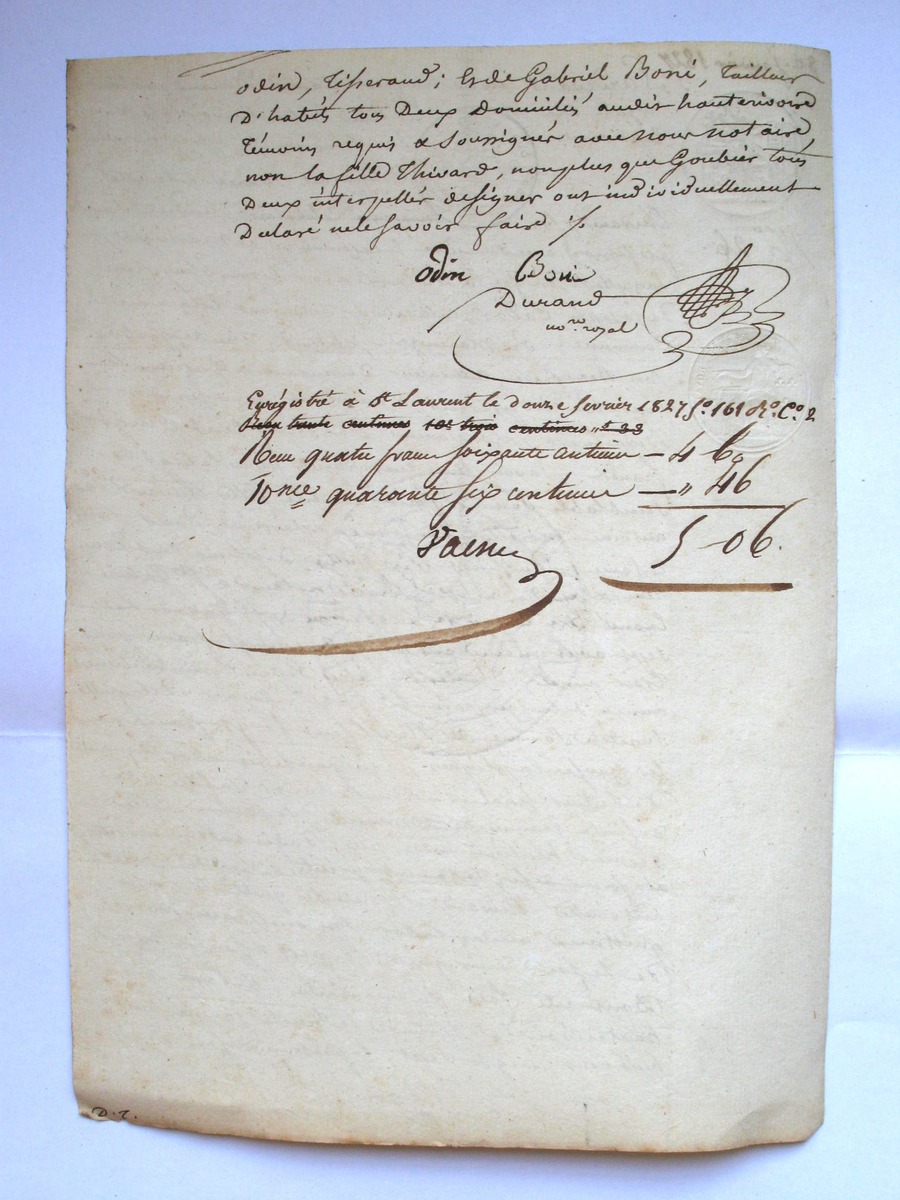 odin, Tisserand; Et de Gabriel Boni, Tailleur
D'habits tous Deux Domiciliés audit hauterivoire
Témoins requis & Soussignés avec nous notaire,
non la fille Thivard, non plus que Goubier tous
Deux interpellés de signer ont individuellement
Déclaré ne le Savoir faire ./.
odin Boni
Durand
no.re royal
Enrégistré à St Laurent le douze fevrier 1827 fo. 161 Ro. Co. 2
trente centimes 10e trois centimes " 33
Reçu quatre francs soixante centimes – 4 60
10me quarante six centimes — " 46
5 06.
D. T.